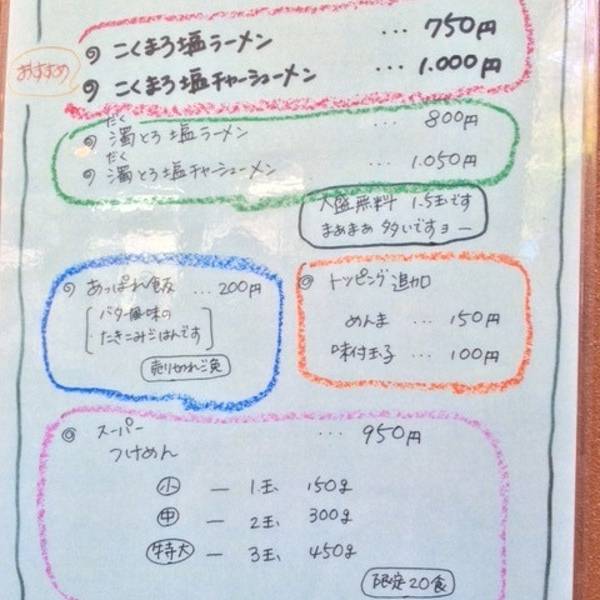 おすすめ
◎ こくまろ塩ラーメン ... 750円
◎ こくまろ塩チャーシューメン ... 1.000円
だく
◎ 濁とろ塩ラーメン ... 800円
だく
◎ 濁とろ塩チャーシューメン ... 1.050円
大盛無料 1.5玉です
まぁまぁ 多いですョー
◎ あっぱれ飯 ... 200円
[バター風味の
たきこみごはんです]
売り切れご免
◎ トッピング追加
めんま ... 150円
味付玉子 ... 100円
◎ スーパー ... 950円
つけめん
小 ー 1玉 150g
中 ー 2玉 300g
特大 ー 3玉 450g
限定20食